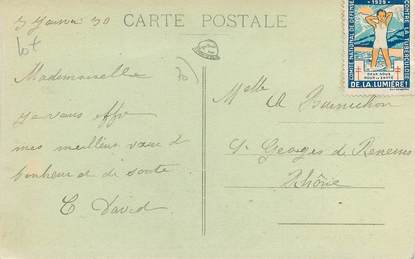 3 Janvier 30
CARTE POSTALE
Lot
70
Mademoiselle
je vous offre
mes meilleurs vœux d
bonheur et de santé
C David
Melle
St Georges de Reneins
Rhône
1929
COMITÉ NATIONAL DE DÉFENSE
CONTRE LA TUBERCULOSE
DEUX SOUS
POUR LA SANTÉ
DE LA LUMIÈRE!